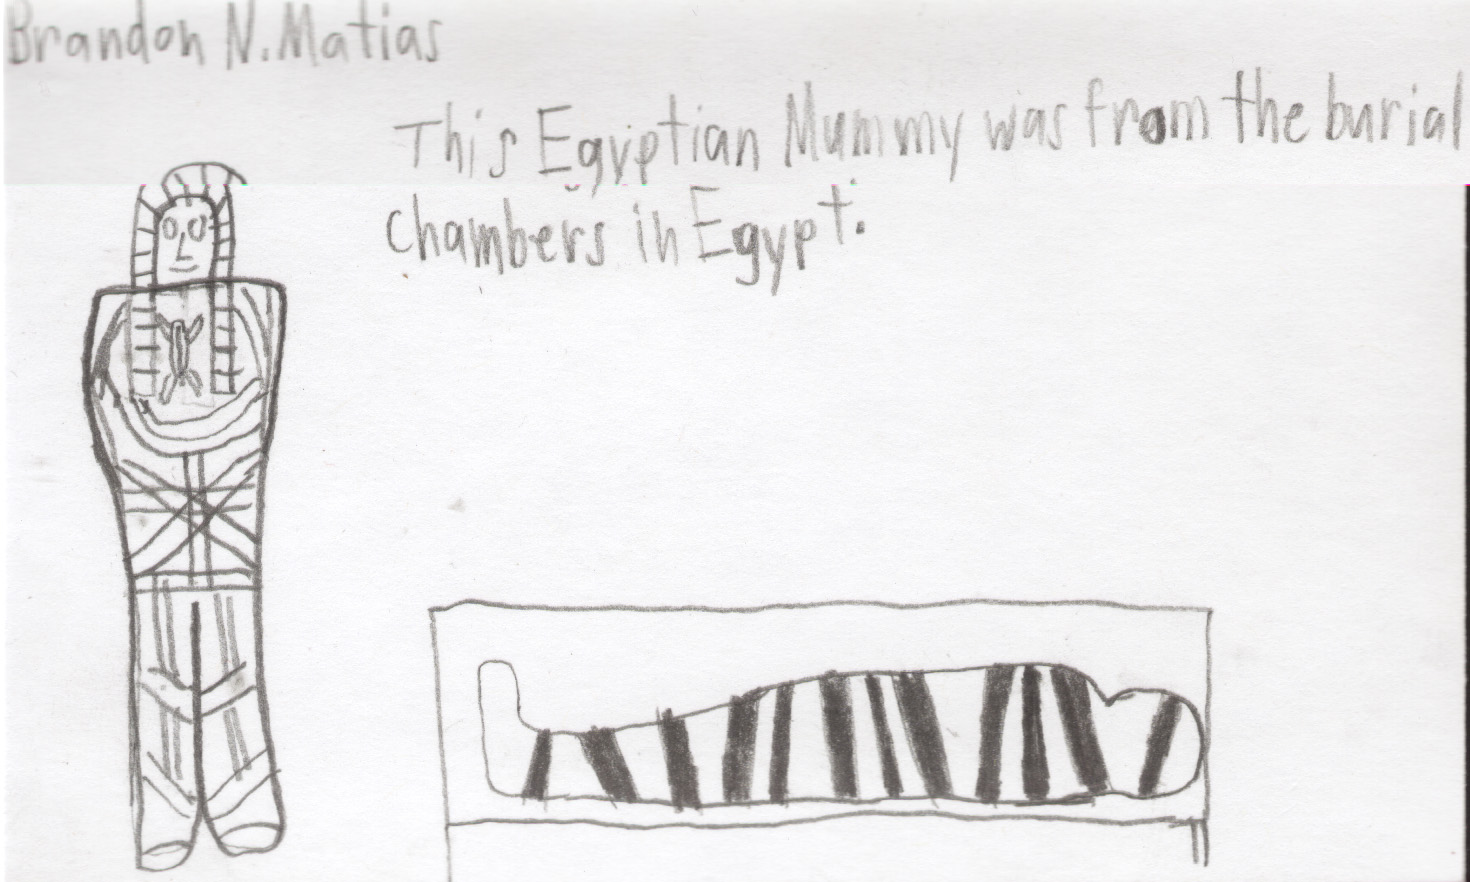 Brandon N. Matias
This Egyptian Mummy was from the burial
chambers in Egypt.